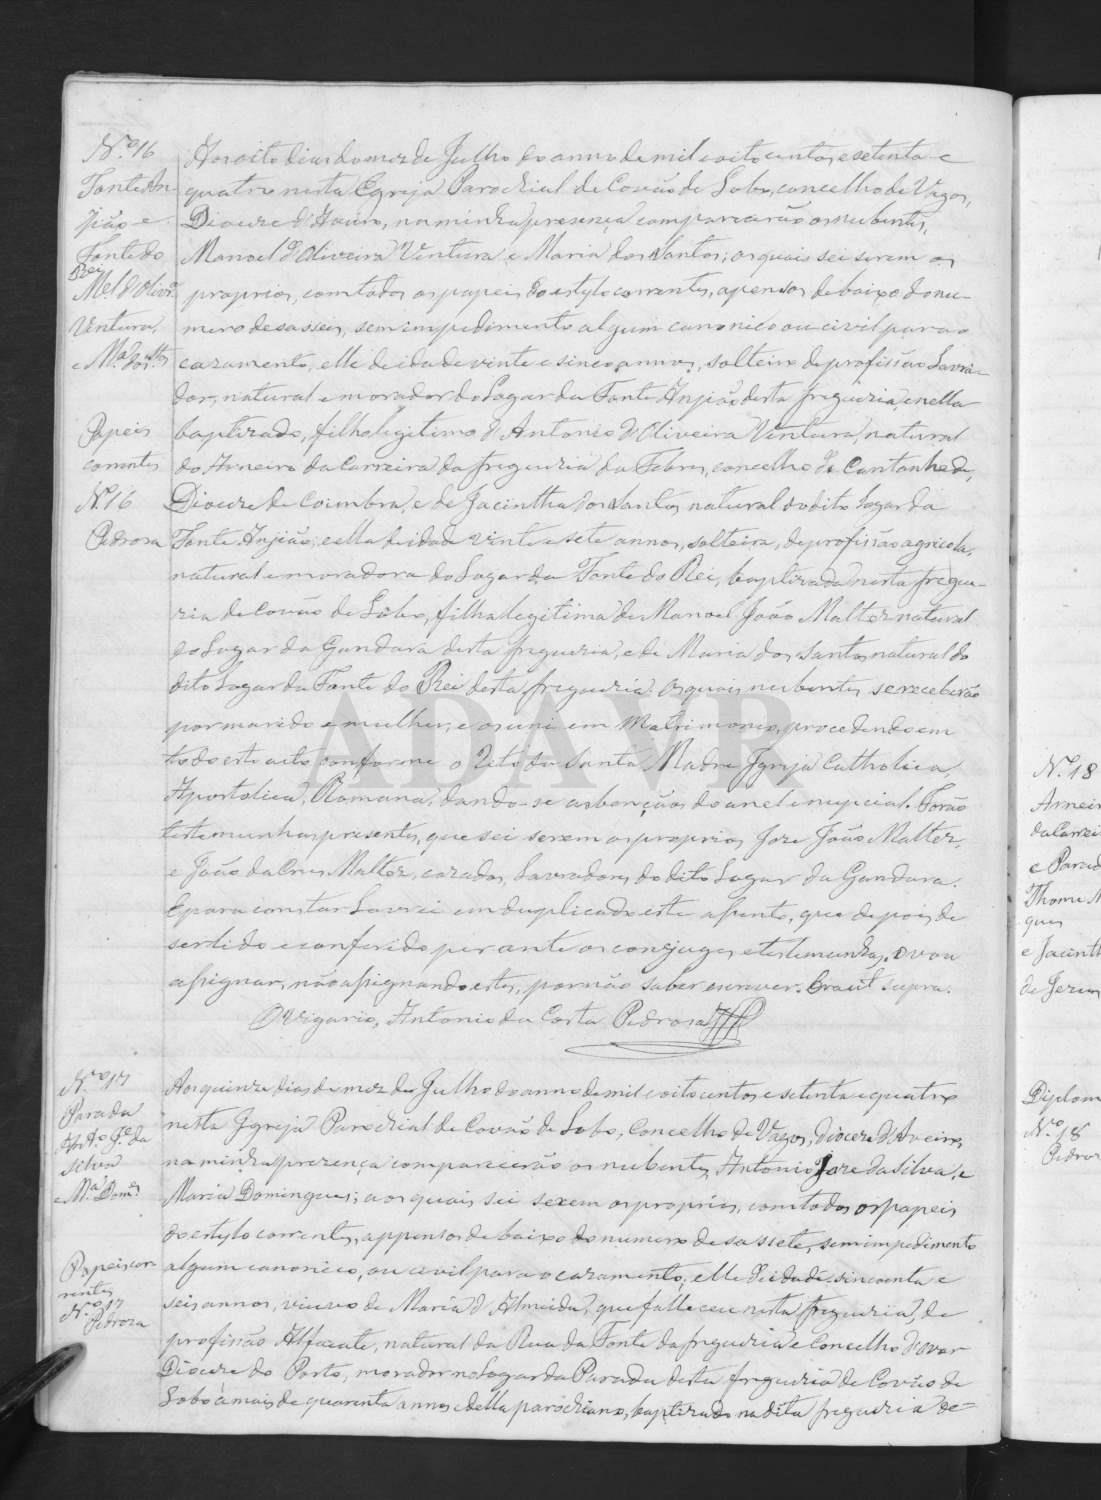 N.º 16
Fonte An-
gião e
Fonte do
Rei
M.el d'Olivr.ª
Ventura,
e M.ª dos Stos
Papeis
correntes
N.º 16
Pedrosa
Aos oito dias do mez de Julho do anno de mil e oito centos e setenta e
quatro nesta Egreja Parochial de Covão de Lobo, concelho de Vagos,
Diocese d'Aveiro, na minha presença comparecerão os nubentes,
Manoel d'Oliveira Ventura e Maria dos Santos; os quais sei serem os
proprios, com todos os papeis do estylo correntes, apensos debaixo do nu-
mero desasseis, sem impedimento algum canonico ou civil para o
cazamento, elle de idade vinte e sinco annos, solteiro de profissão Lavra-
dor, natural e morador do Lugar da Fonte Anjião desta freguezia, e nella
baptizado, filho legitimo d'Antonio d'Oliveira Ventura, natural
do Arneiro da Carreira da freguezia da Febres, concelho de Cantanhede,
Diocese de Coimbra, e de Jacintha dos Santos, natural do dito Lugar da
Fonte Anjião; e ella de idade vinte e sete annos, solteira, de profissão agricola,
natural e moradora do Lugar da Fonte do Rei, baptizada nesta fregue-
zia de Covão de Lobo, filha legitima de Manoel João Maltez natural
do Lugar da Gandara desta freguezia, e de Maria dos Santos natural do
dito Lugar da Fonte do Rei desta freguezia. Os quais nubentes se receberão
por marido e mulher, e os uni em Matrimonio, procedendo em
todo este acto conforme o Rito da Santa Madre Igreja Catholica,
Apostolica, Romana, dando-se as bençãos do anel e nupcial. Forão
testemunhas presentes, que sei serem os proprios Joze João Maltez,
e João da Cruz Maltez, cazados, Lavradores do dito Lugar da Gandara.
E para constar Lavrei em duplicado este assento, que depois de
ser lido e conferido perante os conjuges e testemunhas, o vou
assignar, não assignando estes, por não saber escrever. Era ut supra.
O Vigario, Antonio da Costa Pedrosa
N.º 17
Parada
Ant.º J.e da
Silva
e M.ª Dom.es
Papeis cor-
rentes
N.º 17
Pedrosa
Aos quinze dias do mez de Julho do anno de mil e oito centos e setenta e quatro
nesta Igreja Parochial de Covão de Lobo, Concelho de Vagos, Diocese d'Aveiro,
na minha prezença comparecerão os nubentes, Antonio Joze da Silva, e
Maria Domingues; aos quais sei serem os proprios, com todos os papeis
do estylo correntes, appensos debaixo do numero desassete, sem impedimento
algum canonico, ou civil para o cazamento, elle de idade sincoenta e
seis annos, viuvo de Maria d'Almeida, que falleceu nesta freguezia, de
profissão Alfaiate, natural da Rua da Fonte da freguezia e Concelho d'Ovar
Diocese do Porto, morador no Lugar da Parada desta freguezia de Covão de
Lobo á mais de quarenta annos e della parochiano, baptizado na dita freguezia de
N.º 18
Arneir
da Carrei
e Parad
Thome M
ques
e Jacinth
de Jezus
Diplom
N.º 18
Pedros
ADAVR